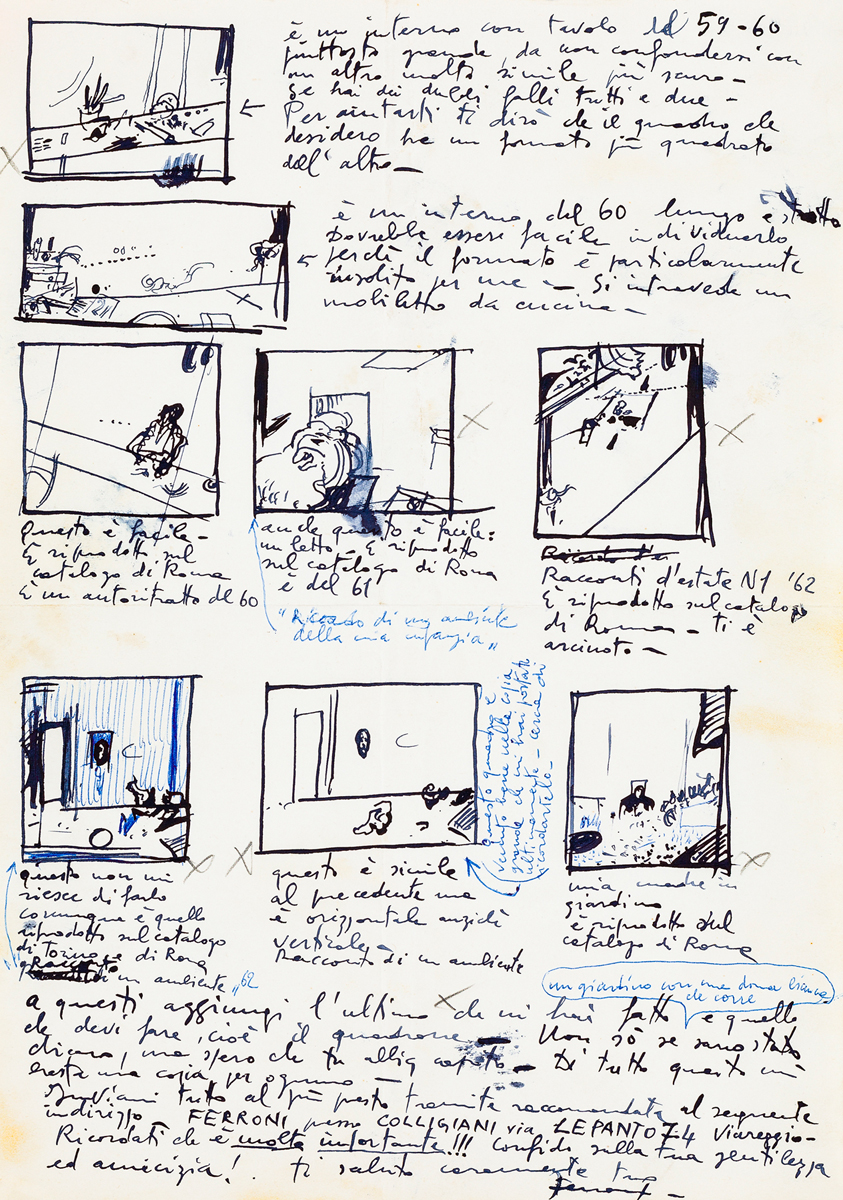 è un interno con tavolo del 59-60
piuttosto grande da non confondersi con
un altro molto simile più scuro -
Se hai dei dubbi falli tutti e due -
Per aiutarti ti dirò che il quadro che
desidero ha un formato più quadrato
dell'altro -
è un interno del 60 lungo e stretto
Dovrebbe essere facile individuarlo
perchè il formato è particolarmente
insolito per me - Si intravede un
mobiletto da cucina -
Questo è facile -
È riprodotto sul
catalogo di Roma
È un autoritratto del 60
anche questo è facile:
un letto - È riprodotto
sul catalogo di Roma
è del 61
"Ricordo di un ambiente
della mia infanzia"
Racconti d'estate N1 '62
È riprodotto sul catalogo
di Roma - ti è
arcinoto -
questo non mi
riesce di farlo
comunque è quello
riprodotto sul catalogo
di Torino e di Roma
di un ambiente" 62
questo è simile
al precedente ma
è orizzontale anzichè
verticale -
Racconto di un ambiente
questo quadro è
venuto bene nella copia
grande che mi hai portato
ultimamente - cerca di
ricordartelo -
una madre in
giardino
è riprodotto sul
catalogo di Roma
un giardino con una donna bianca
che corre
a questi aggiungi l'ultimo che mi hai fatto e quello
che devi fare, cioè il quadrone Non sò se sono stato
chiaro, ma spero che tu abbia capito - Di tutto questo mi
basta una copia per ognuno -
Inviami tutto al più presto tramite raccomandata al seguente
indirizzo - FERRONI presso COLLIGIANI via LEPANTO 74 Viareggio -
Ricordati che è molto importante!!! Confido sulla tua gentilezza
ed amicizia! ti saluto caramente tuo
Ferroni -